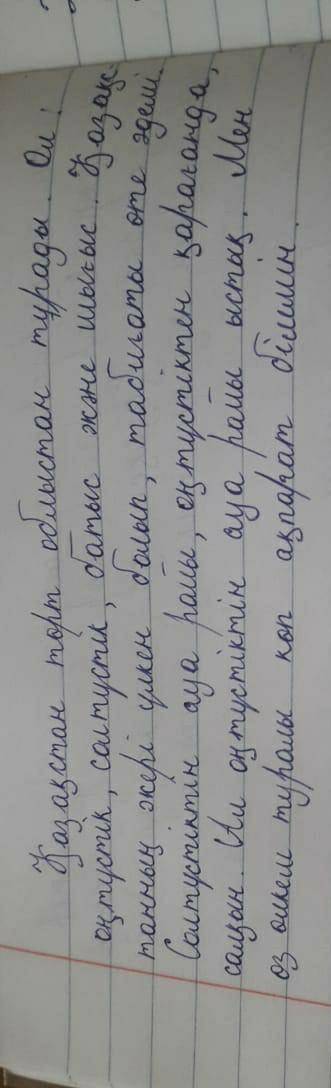 Қазақстан төрт облыстан тұрады. Ол:
оңтүстік, солтүстік, батыс және шығыс. Қазақс-
танның жері үлкен болып, табиғаты өте әдемі.
Солтүстіктін ауа райы, оңтүстіктен қарағанда,
салқын. Ил оңтүстіктін ауа райы ыстық. Мен
өз өлкем туралы көп ақпарат білемін.